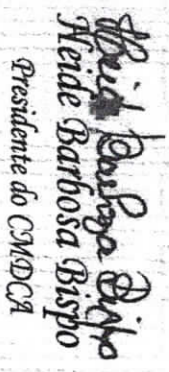 Neide Barbosa Bispo
Neide Barbosa Bispo
Presidente do CMDCA